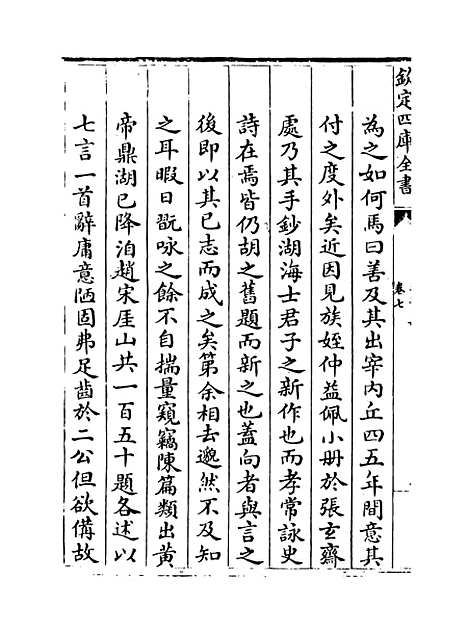 欽定四庫全書
卷七
為之如何馬曰善及其出宰內丘四五年間意其
付之度外矣近因見族姪仲益佩小册於張玄齋
處乃其手鈔湖海士君子之新作也而孝常詠史
詩在焉皆仍胡之舊題而新之也蓋向者與言之
後即以其已志而成之矣第余相去邈然不及知
之耳暇日翫咏之餘不自揣量窺竊陳篇類出黄
帝鼎湖已降洎趙宋厓山共一百五十題各述以
七言一首辭庸意陋固弗足齒於二公但欲備故